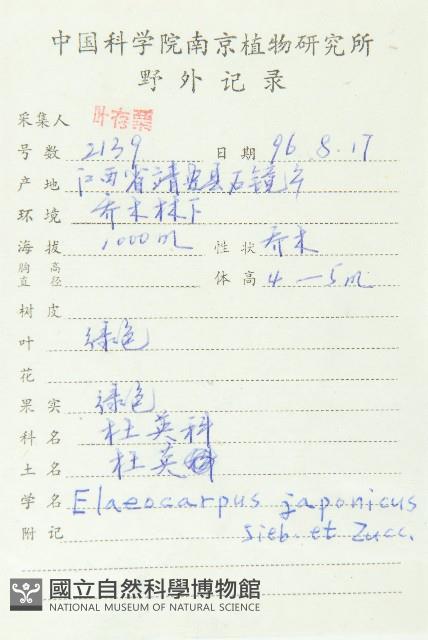 中国科学院南京植物研究所
野外记录
采集人 叶存粟
号数 2139 日期 96.8.17
产地 江西省靖安县石镜
环境 乔木林下
海拔 1000m 性状 乔木
胸高直径 体高 4—5m
树皮
叶 绿色
花
果实 绿色
科名 杜英科
土名 杜英
学名 Elaeocarpus japonicus
附记 Sieb. et Zucc.
國立自然科學博物館
NATIONAL MUSEUM OF NATURAL SCIENCE